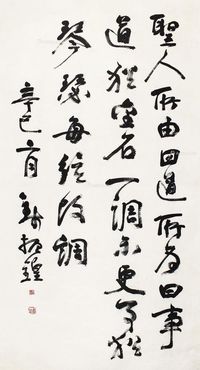 聖人所由曰道所為曰事
道猶金石一調不更事猶
琴瑟每弦改調
辛巳